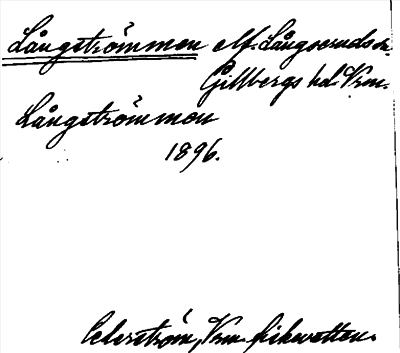 Långströmmen elf. Långseruds sn.
Gillbergs hd. Vrm.
Långströmmen
1896.
Cederström, Vrm. fiskevatten.